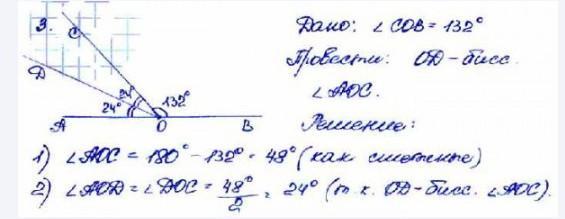 3.
C
D
24°
24°
132°
A
O
B
Дано: ∠COB = 132°
Провести: OD – бисс.
∠AOC.
Решение:
1) ∠AOC = 180° – 132° = 48° (как смежные)
2) ∠AOD = ∠DOC = 48°/2 = 24° (т.к. OD – бисс. ∠AOC).